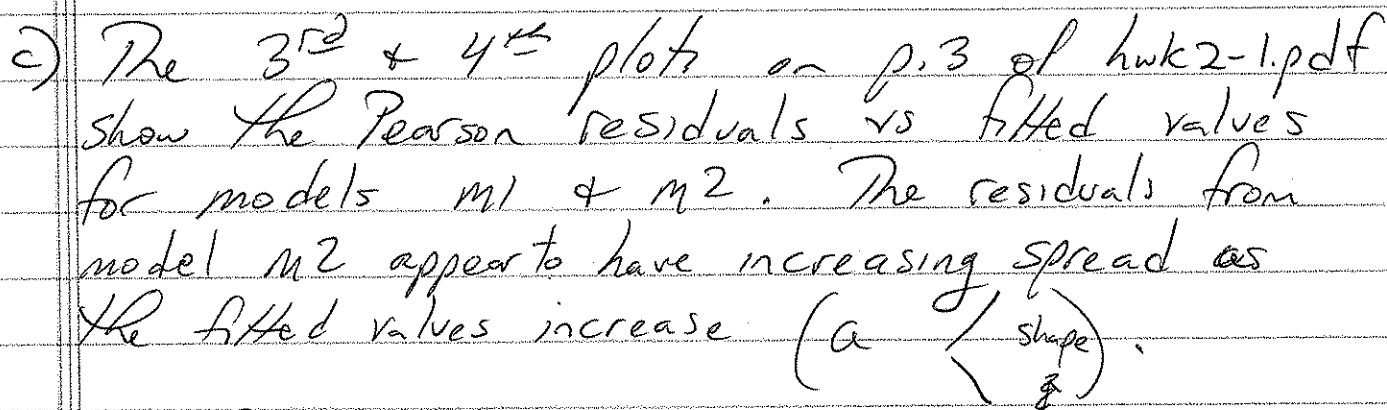 c) The 3rd & 4th plots on p.3 of hwk2-1.pdf
show the Pearson residuals vs fitted values
for models m1 & m2. The residuals from
model m2 appear to have increasing spread as
the fitted values increase (a < shape).